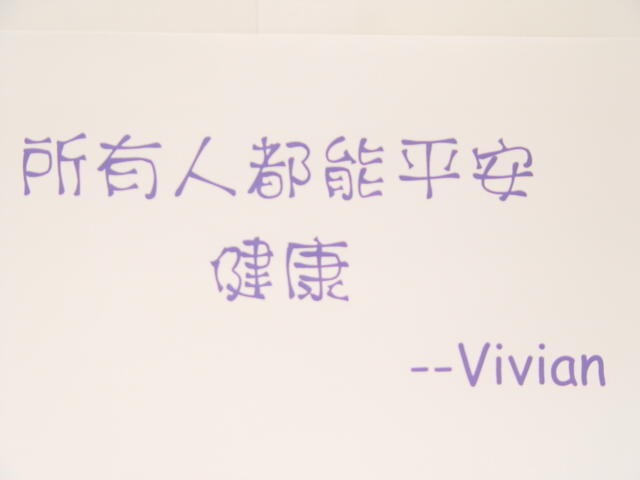 所有人都能平安
健康
--Vivian